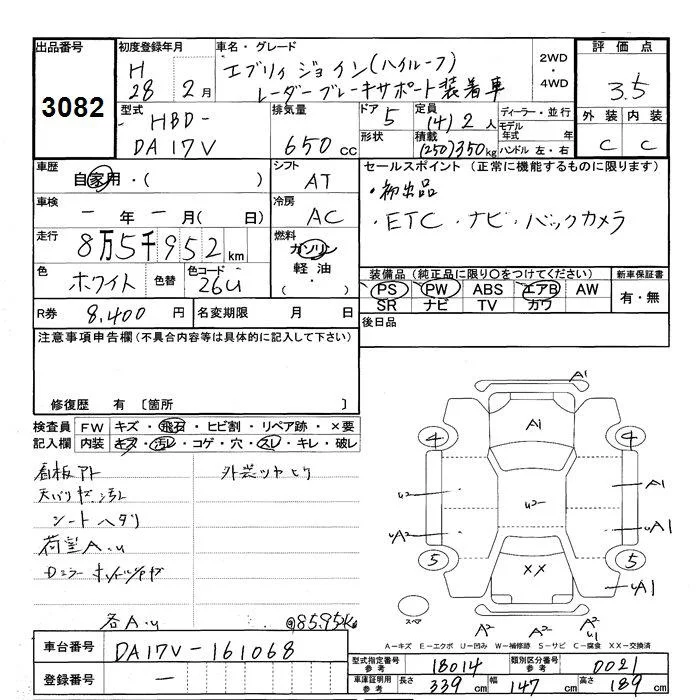 出品番号 初度登録年月 車名・グレード 評価点
3082 H 28 2月 エブリィ ジョイン(ハイルーフ) 2WD・4WD 3.5
レーダーブレーキサポート装着車
型式 排気量 ドア 5 定員 (4)2人 ディーラー・並行 外装 内装
HBD-
DA17V 650cc 形状 積載 (250)350kg モデル年式 年 C C
ハンドル 左・右
車歴 シフト セールスポイント (正常に機能するものに限ります)
自家用・( ) AT ・初出品
車検 冷房 ・ETC・ナビ・バックカメラ
ー年ー月( 日) AC
走行 8万5千952km 燃料 ガソリン
軽油
・( )
色 ホワイト 色替 色コード 26U
装備品 (純正品に限り○をつけてください) 新車保証書
PS PW ABS エアB AW 有・無
SR ナビ TV カワ
R券 8,400円 名変期限 月 日 後日品
注意事項申告欄 (不具合内容等は具体的に記入して下さい)
修復歴 有 〔箇所 〕
検査員 FW キズ・飛石・ヒビ割・リペア跡・×要
記入欄 内装 キズ・汚レ・コゲ・穴・スレ・キレ・破レ
看板アト 外装ツヤヒケ
汚レ
シートヘタリ
荷室A.U
各A.U
A1
A1
4 4
U2 U2 A1
UA2 UA1
5 XX 5
UA1
A2 A2 A2
U1
スペア
A-キズ E-エクボ U-凹み W-補修跡 S-サビ C-腐食 XX-交換済
車台番号 DA17V-161068
型式指定番号 参考 18014 類別区分番号 参考 0021
登録番号 ー
車庫証明用 参考 長さ 339cm 幅 147cm 高さ 189cm